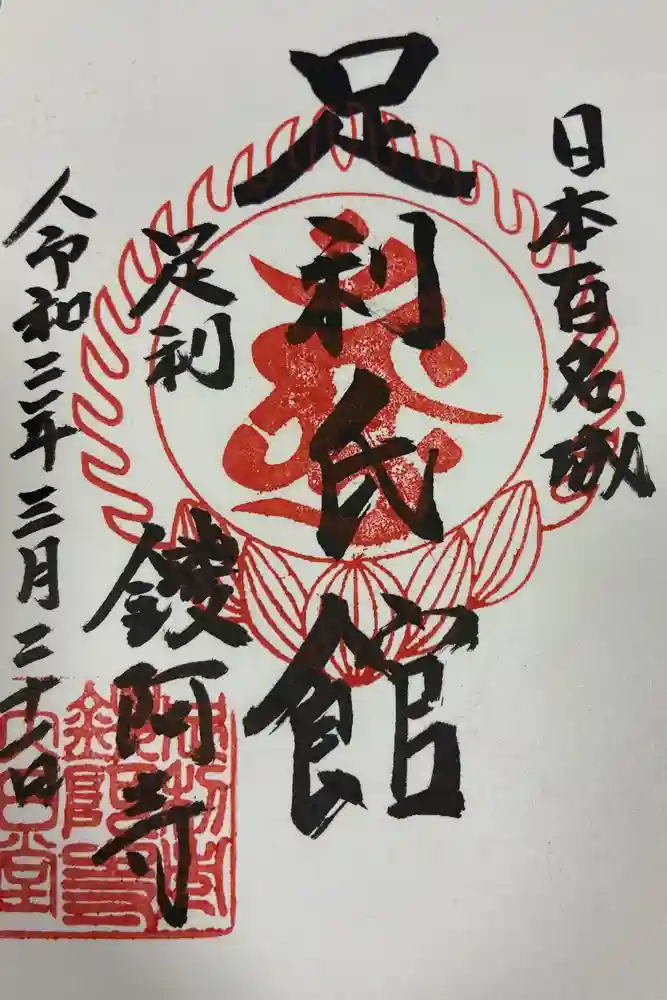 日本百名城
足利氏館
足利
鑁阿寺
令和三年三月二十八日